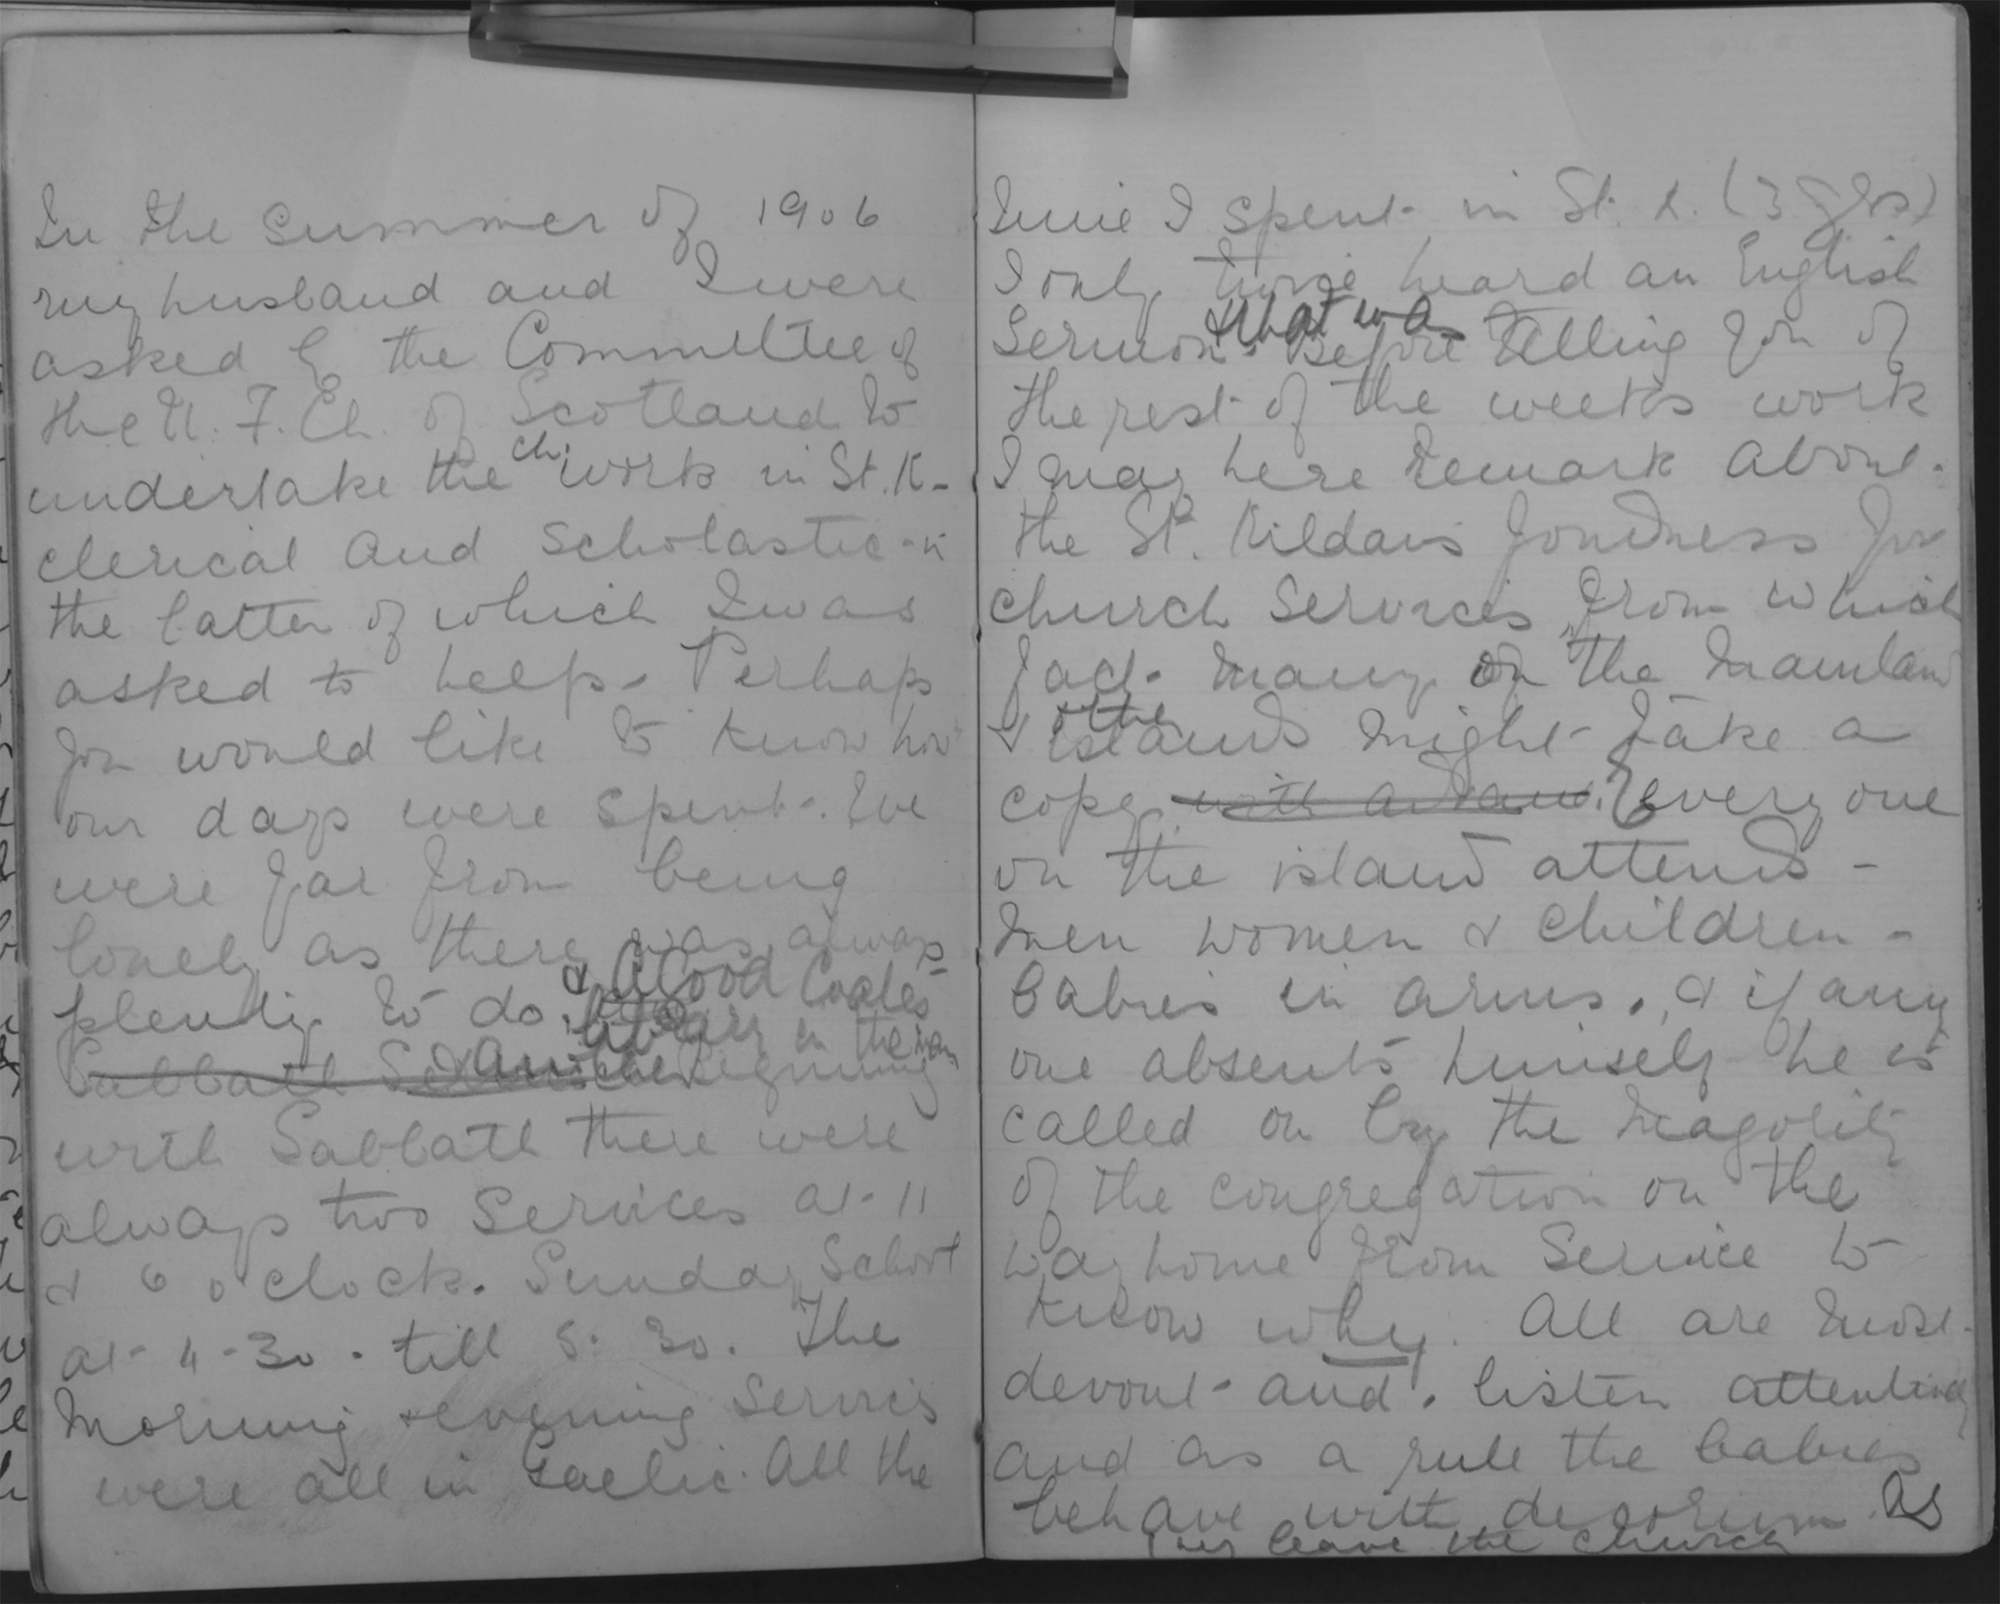 In the summer of 1906
my husband and I were
asked by the Committee of
the U. F. Ch. of Scotland to
undertake the ch. work in St. K-
clerical and scholastic - in
the latter of which I was
asked to help - Perhaps
you would like to know how
our days were spent. We
were far from being
lonely as there was always
plenty to do & a Good Coates
library in the man
Sabbath & another Beginning
with Sabbath there were
always two Services at 11
& 6 o clock. Sunday School
at 4-30 . till 5: 30. The
Morning & evening Services
were all in Gaelic. All the
time I spent in St. K. (3 yrs)
I only twice heard an English
Sermon. What was Before telling you of
the rest of the weeks work
I may here remark about
the St. Kildans fondness for
church services from which
fact many on the Mainland
& other islands might take a
copy with advan. Everyone
on the island attends -
Men women & children -
babies in arms., & if any
one absents himself he is
called on by the magority
of the congregation on the
way home from Service to
know why. All are most
devout and . listen attentively
and as a rule the babies
behave with decorum. As
they leave the church